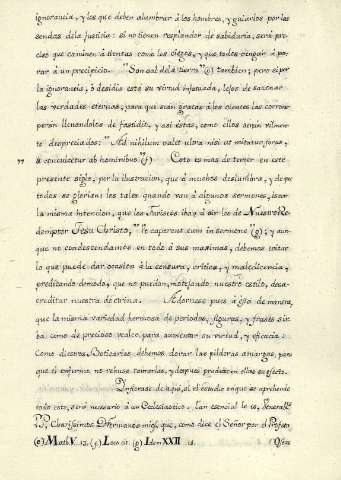 ignorancia, y los que deben alumbrar à los hombres, y guiarlos por las
sendas de la Justicia: si no tienen resplandor de sabiduria, será pre-
ciso que caminen à tientas como los ciegos, y que todos vengan à pa-
rar à un precipicio. "Son sal de la tierra" (e) tambien; pero si por
la ignorancia, ò desidia està su virtud infatuada, lejos de sazonar
las verdades eternas, para que sean gratas à los oientes las corrom-
perán llenandolos de fastidio, y asi éstas, como ellos serán vilmen-
te despreciados: "Ad nihilum valet ultra nisi ut mittatur foras,
" et conculcetur ab hominibus" (f) Esto es mas de temer en este
presente siglo, por la ilustracion, que à muchos deslumbra, y de que
todos se glorian: los tales quando van à algunos sermones, les ar-
la misma intencion, que los Fariseos iban à oir los de Nuestro Re-
demptor Jesu Christo, "Ut caperent eum in sermone" (g); y aun-
que no condescendamos en todo à sus maximas, debemos evitar
lo que puede dar ocasion à la censura, critica, y maledicencia,
predicando de modo, que no puedan, motejando nuestro estilo, desa-
creditar nuestra doctrina. Adornese pues à ésta de manera,
que la misma variedad hermosa de periodos, figuras, y frases sir-
ba como de precioso realce, para aumentar su virtud, y eficacia.
Como diestros Boticarios debemos dorar las pildoras amargas, para
que el enfermo no rehuse tomarlas, y despues produzcan ellas su efecto.
Infierase de aqui, si el estudio en que se aprehende
todo esto, será necesario à un Ecclesiastico. Tan esencial le es, Venerables
P.P. Charissimos Hermanos mios, que, como dice el Señor por el Profeta
(e) Math. V. 13. (f) Loco cit. (g) Idem XXII 15. Oseas